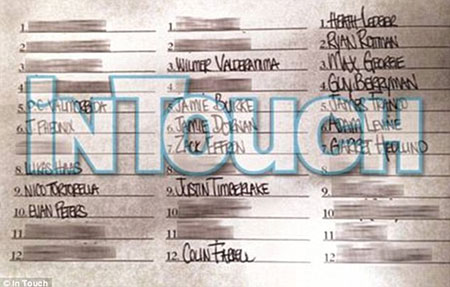 1
2
3.
4
5. P.C VALMORBIDA
6. J. PHOENIX
7
8. LUKAS HAAS
9. NICO TORTORELLA
10. EVAN PETERS
11
12
1
2
3. WILMER VALDERAMA
4
5. JAMIE BURKE
6. JAMIE DORNAN
7. ZACK EFFRON
8
9. JUSTIN TIMBERLAKE
10
11
12. COLIN FARRELL
1. HEATH LEDGER
2. RYAN ROTTMAN
3. MAX GEORGE
4. GUY BERRYMAN
5. JAMES FRANCO
6. ADAM LEVINE
7. GARRET HEDLUND
8.
9.
10.
11.
12.
InTouch
© In Touch